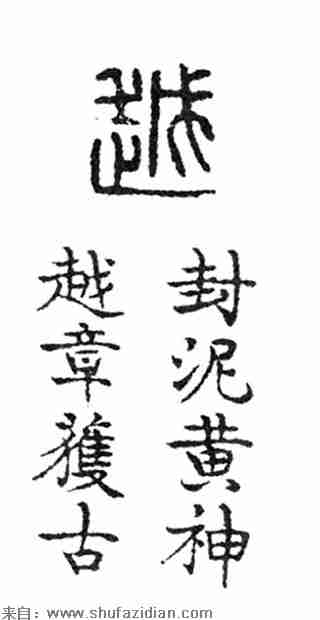 越
封泥黄神
越章獲古
来自：www.shufazidian.com